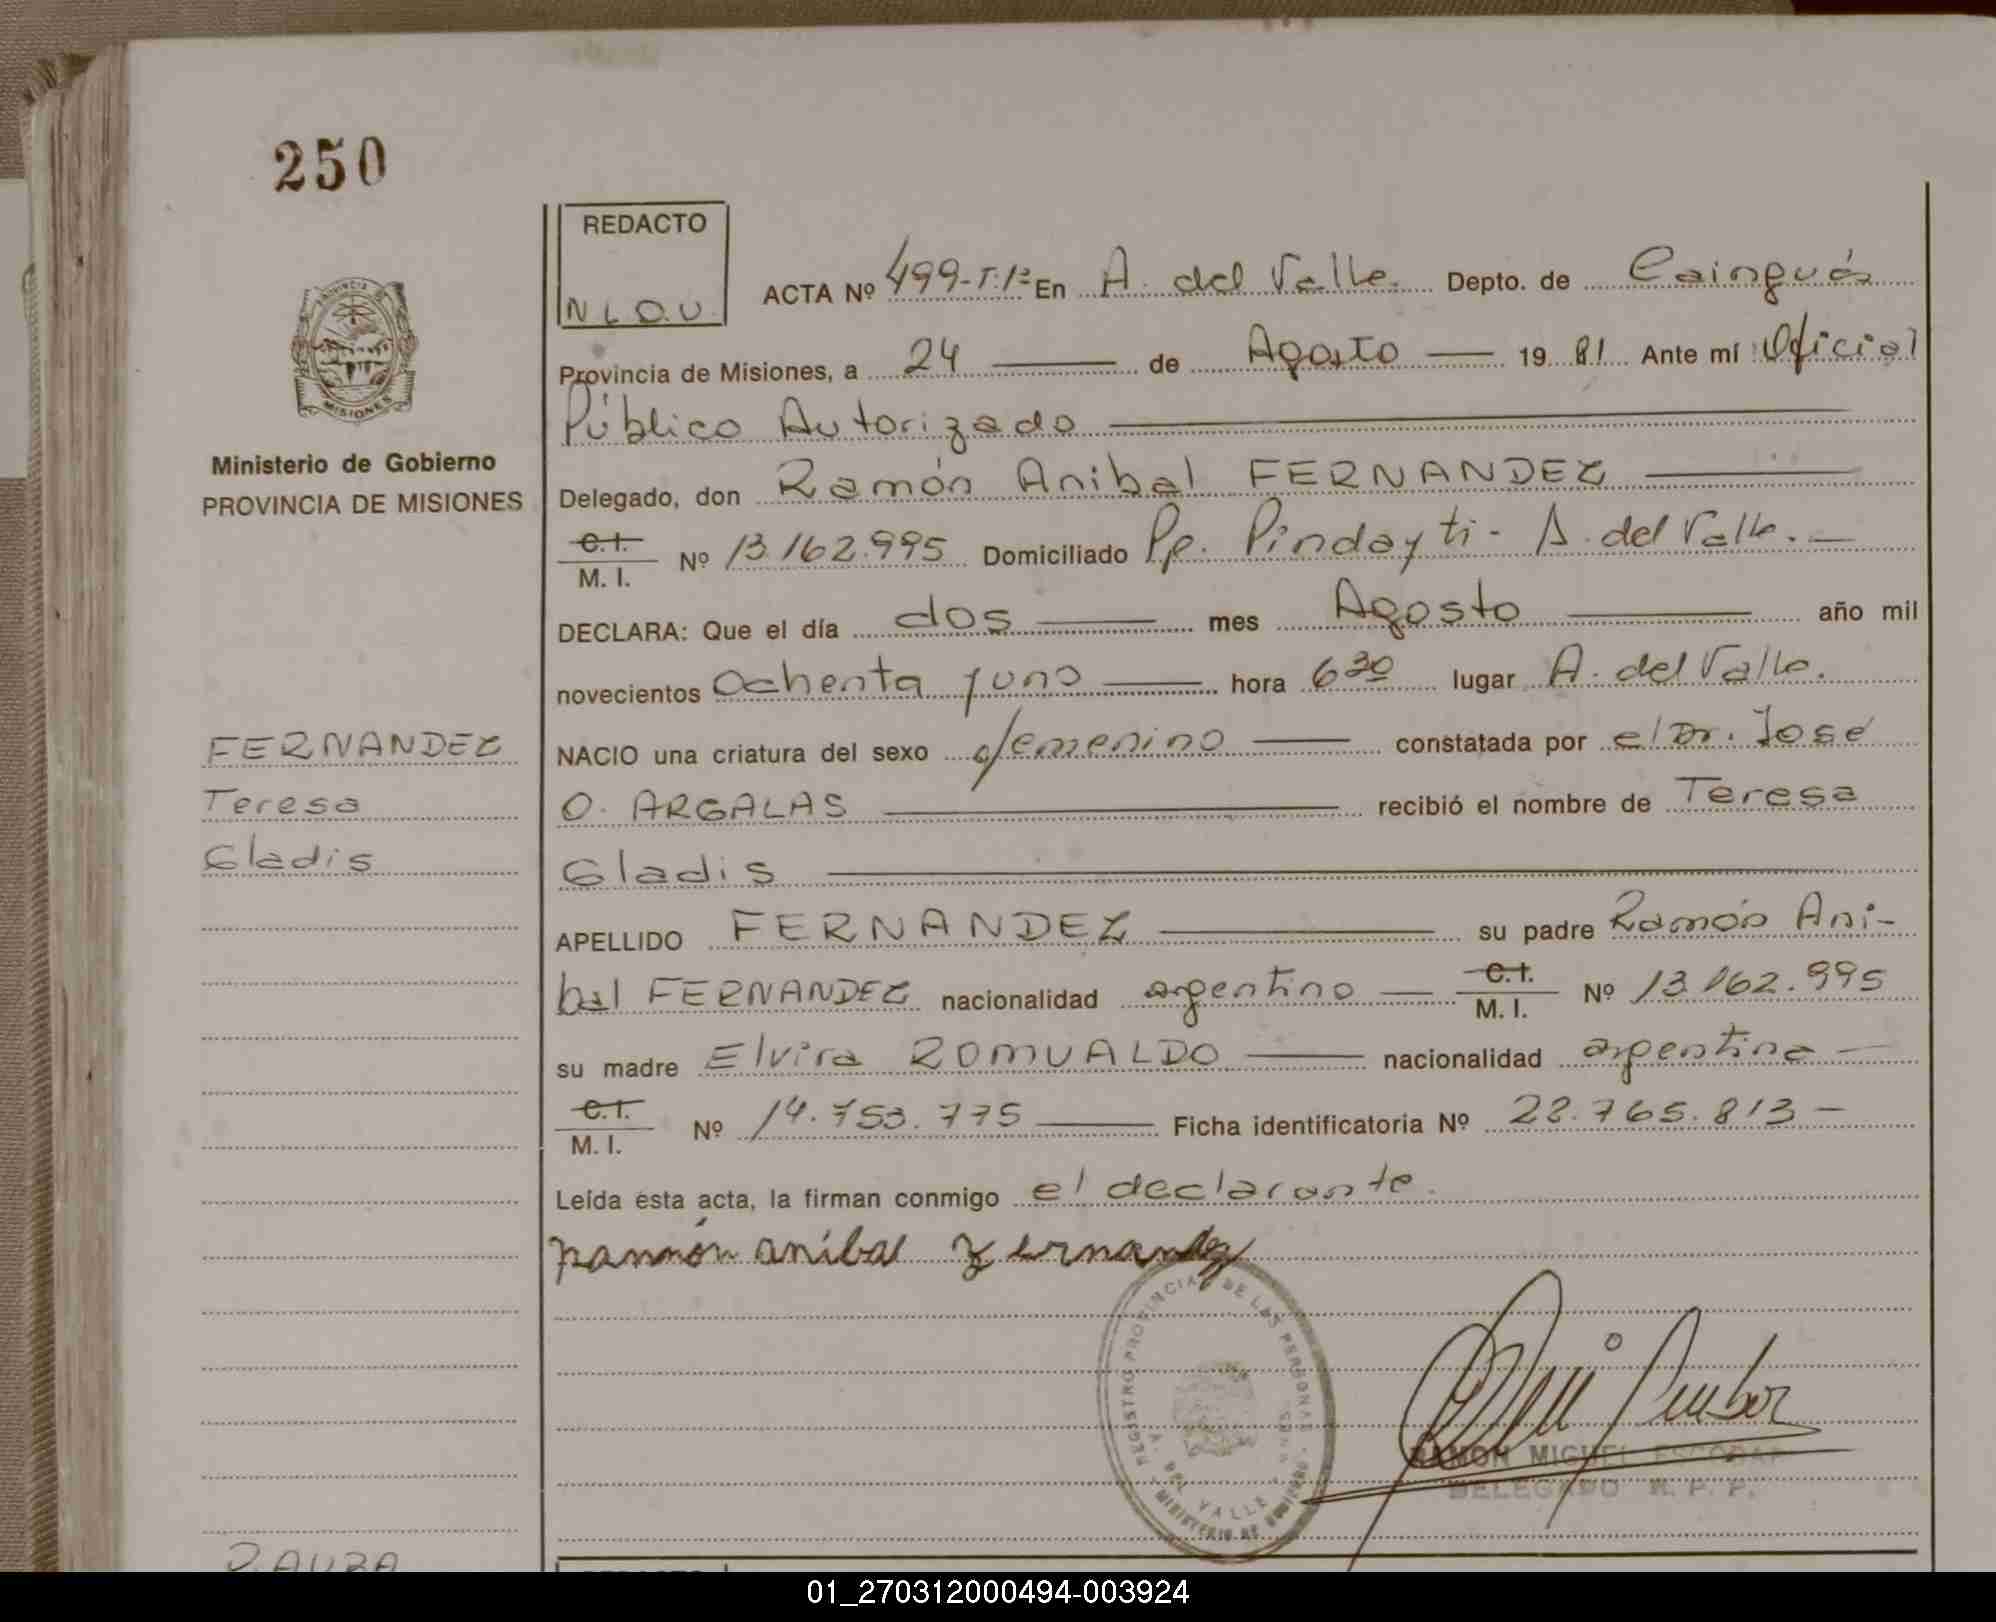 250
REDACTO
N L O. U.
ACTA Nº 499-T:1º En A. del Valle. Depto. de Cainguás
Provincia de Misiones, a 24 de Agosto 19 81 Ante mí Oficial
Público Autorizado
Ministerio de Gobierno
PROVINCIA DE MISIONES
Delegado, don Ramón Anibal FERNANDEZ
C.I. M. I. Nº 13.162.995 Domiciliado Pje. Pindayti - A. del Valle.
DECLARA: Que el día dos mes Agosto año mil
novecientos Ochenta y uno hora 6 30 lugar A. del Valle.
NACIO una criatura del sexo femenino constatada por el Dr. José
O. ARGALAS recibió el nombre de Teresa
Gladis
FERNANDEZ
Teresa
Gladis
APELLIDO FERNANDEZ su padre Ramón Ani-
bal FERNANDEZ nacionalidad argentino C.I. M. I. Nº 13.162.995
su madre Elvira ROMUALDO nacionalidad argentina
C.I. M. I. Nº 14.753.775 Ficha identificatoria Nº 28.765.813
Leída esta acta, la firman conmigo el declarante.
ramón anibal Fernandez
REGISTRO PROVINCIAL DE LAS PERSONAS
A. DEL VALLE
MINISTERIO DE GOBIERNO
RAMON MIGUEL ESCOBAR
DELEGADO R. P. P.
01_270312000494-003924